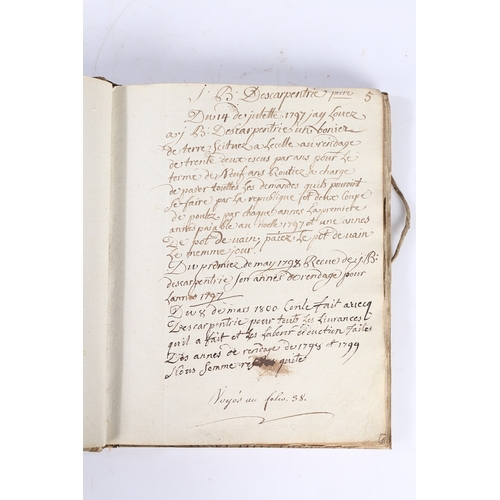 j. B: Descarpentrie père 5
Du 14 de julette 1797 jay Louez
a j. B: Descarpentrie un bonier
de terre Scituez a Lecelle au rendage
de trente deux escus par ans pour le
terme de Neuf ans Routiez a charge
de paÿer touttes les demandes quils pouront
Se faire par la republique et deux Coupe
de par chaque annes La premiere
annes païable au noelle 1797 et une annes
De pot de vain paiez Le pot de vain
Le memme jour
Du premiez de may 1798 Recue de j. B:
descarpentrie Son annes de rendage pour
Lannez 1797
Du 8 de mars 1800 Conte fait avecq
Descarpentrie pour touts les Livrances
quil a fait et les Labeur deduction faites
Des annes de rendage de 1798 et 1799
Nous Somme quitte
Voyés au folio. 38.